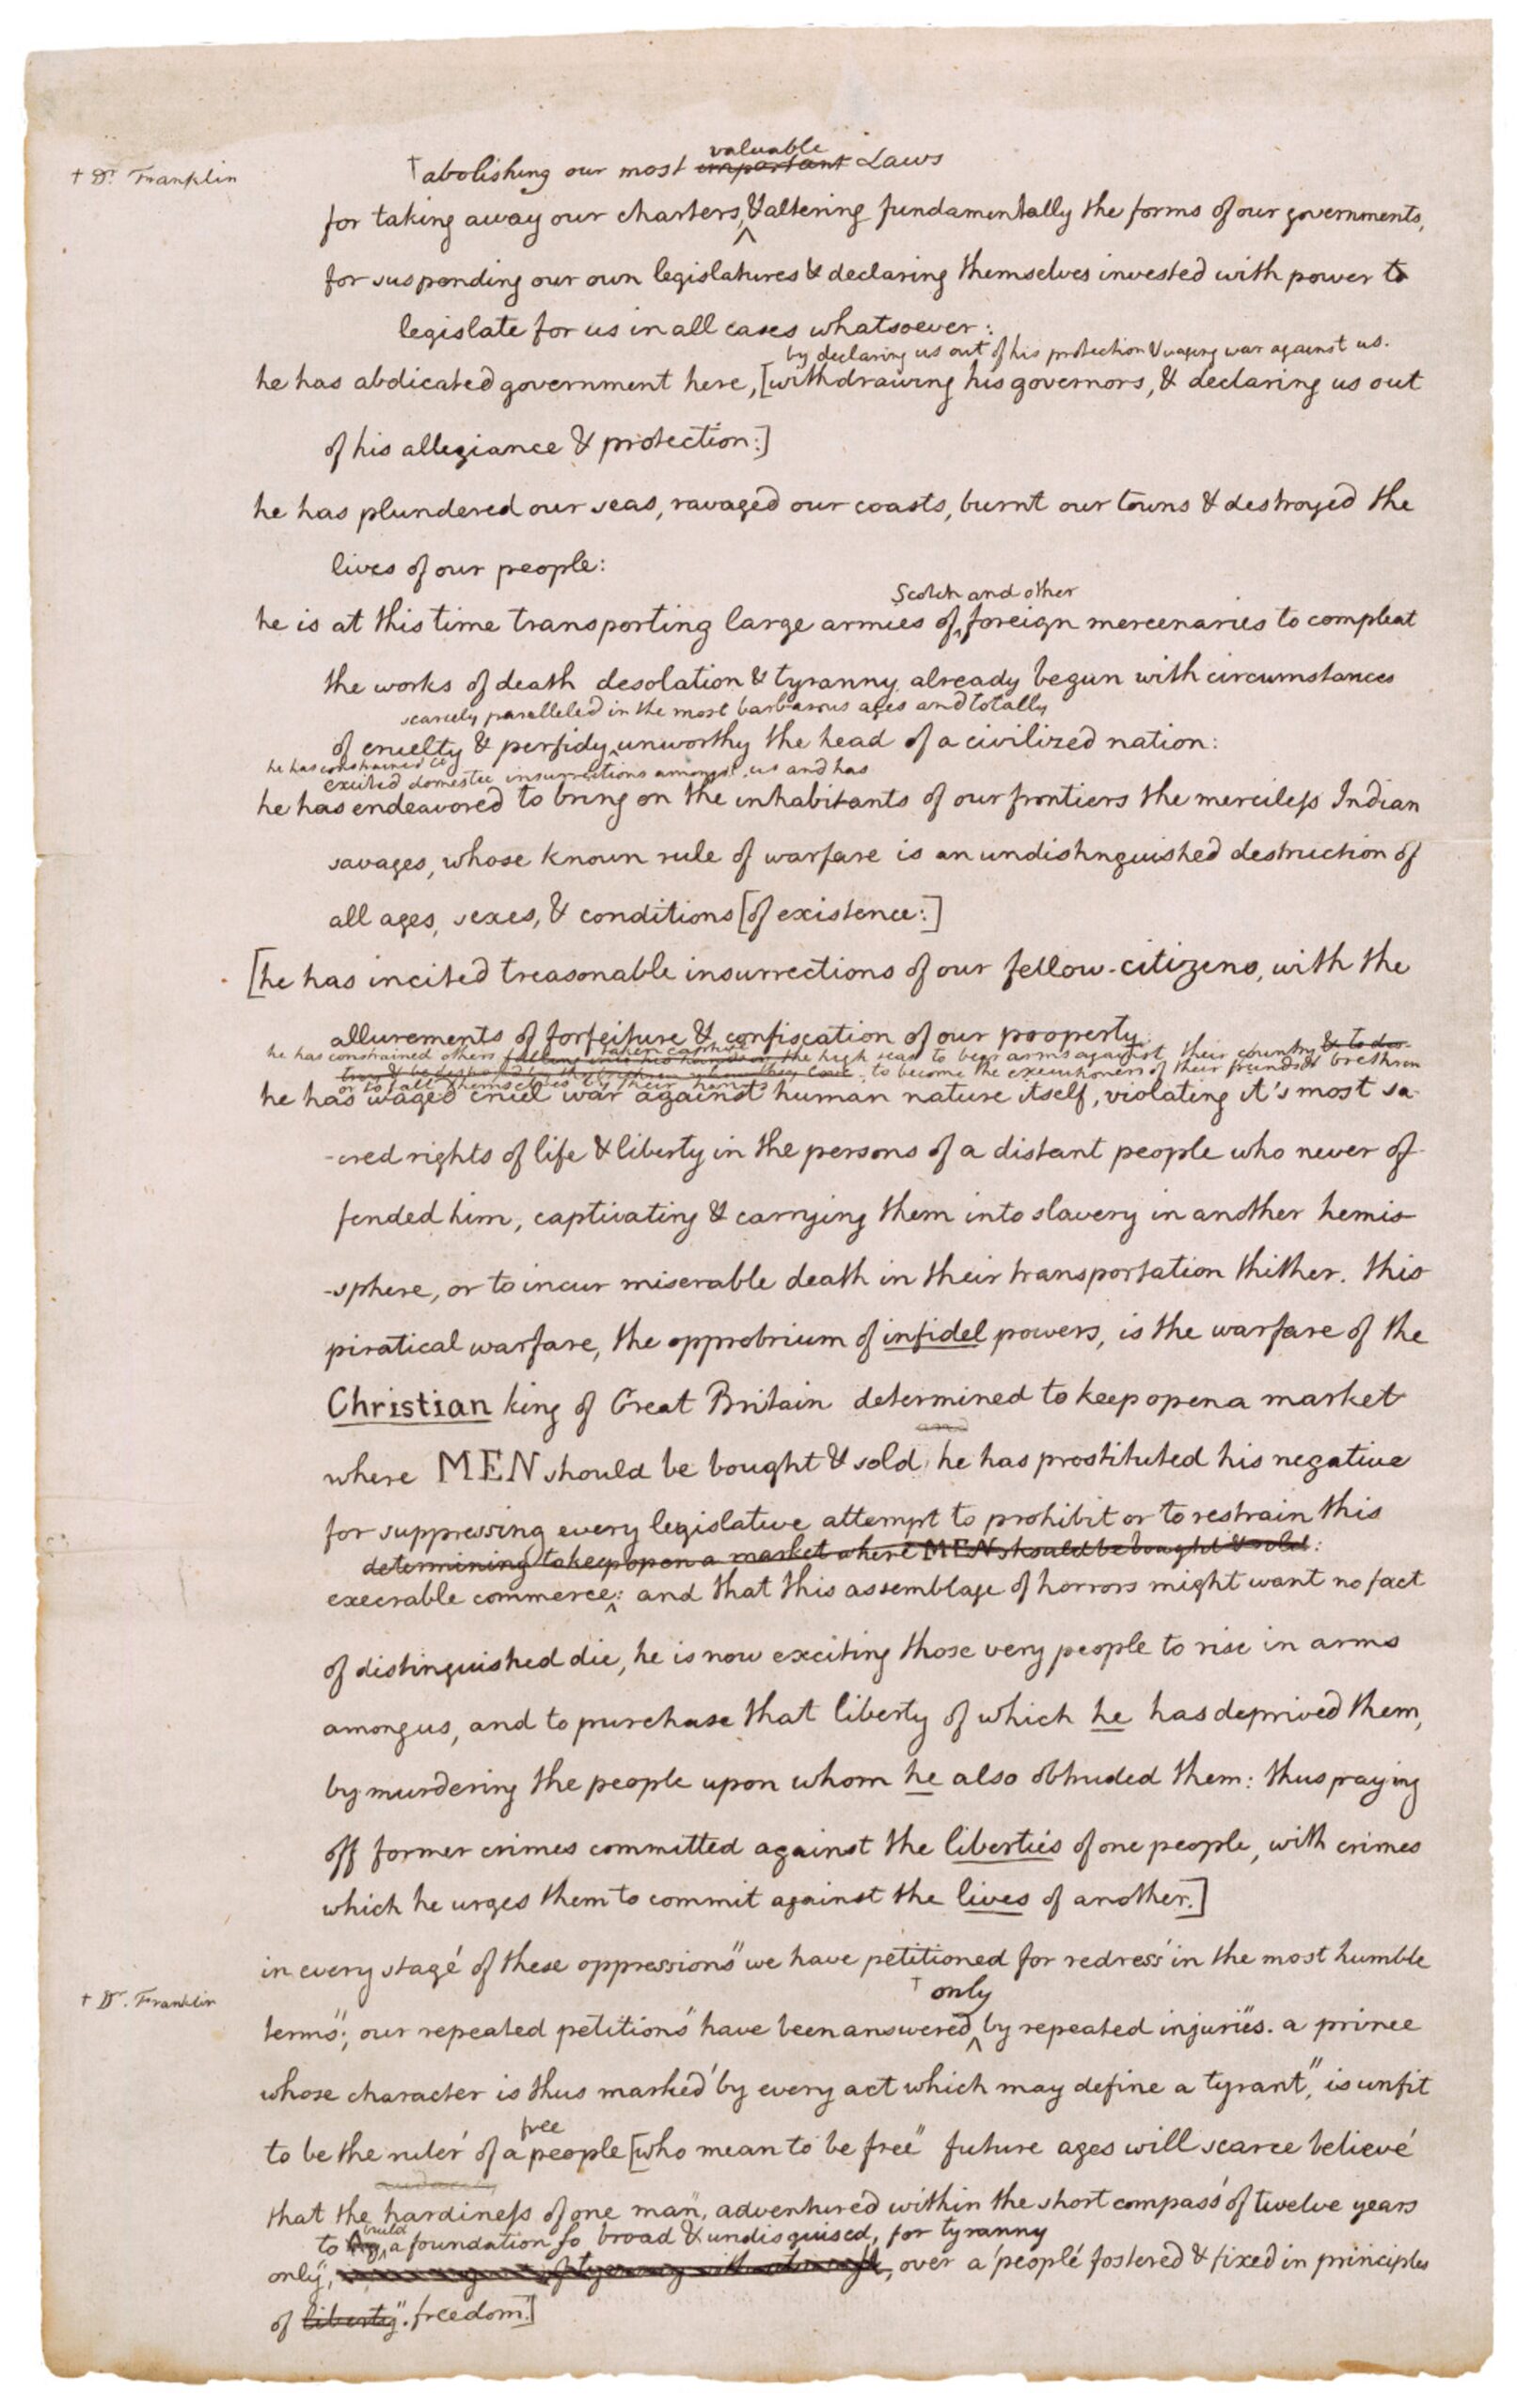 † Dr. Franklin
† abolishing our most valuable important Laws
for taking away our charters, & altering fundamentally the forms of our governments,
for suspending our own legislatures & declaring themselves invested with power to
legislate for us in all cases whatsoever:
by declaring us out of his protection & waging war against us.
he has abdicated government here, [withdrawing his governors, & declaring us out
of his allegiance & protection:]
he has plundered our seas, ravaged our coasts, burnt our towns & destroyed the
lives of our people:
Scotch and other
he is at this time transporting large armies of ^ foreign mercenaries to compleat
the works of death desolation & tyranny already begun with circumstances
scarcely paralleled in the most barbarous ages and totally
of cruelty & perfidy ^ unworthy the head of a civilized nation:
he has constrained
excited domestic insurrections amongst us and has
he has endeavored to bring on the inhabitants of our frontiers the merciless Indian
savages, whose known rule of warfare is an undistinguished destruction of
all ages, sexes, & conditions [of existence:]
[he has incited treasonable insurrections of our fellow-citizens, with the
allurements of forfeiture & confiscation of our property:
taken captive
he has constrained others falling into his hands on the high seas to bear arms against their country & to des-
troy & be destroyed by the brethren whom they love, to become the executioners of their friends & brethren
or to fall themselves by their hands
he has waged cruel war against human nature itself, violating it's most sa-
-cred rights of life & liberty in the persons of a distant people who never of-
fended him, captivating & carrying them into slavery in another hemis-
-sphere, or to incur miserable death in their transportation thither. this
piratical warfare, the opprobrium of infidel powers, is the warfare of the
Christian king of Great Britain determined to keep open a market
and
where MEN should be bought & sold, he has prostituted his negative
for suppressing every legislative attempt to prohibit or to restrain this
determining to keep open a market where MEN should be bought & sold:
execrable commerce ^: and that this assemblage of horrors might want no fact
of distinguished die, he is now exciting those very people to rise in arms
among us, and to purchase that liberty of which he has deprived them,
by murdering the people upon whom he also obtruded them: thus paying
off former crimes committed against the liberties of one people, with crimes
which he urges them to commit against the lives of another.]
in every stage' of these oppressions" we have petitioned for redress' in the most humble
† Dr. Franklin
† only
terms"; our repeated petitions" have been answered ^ by repeated injuries". a prince
whose character is thus marked' by every act which may define a tyrant", is unfit
free
to be the ruler' of a people [who mean to be free" future ages will scarce believe'
audacity
that the hardiness of one man", adventured within the short compass' of twelve years
build
to ^ a foundation so broad & undisguised, for tyranny
only", over a' people' fostered & fixed in principles
of liberty". freedom."]